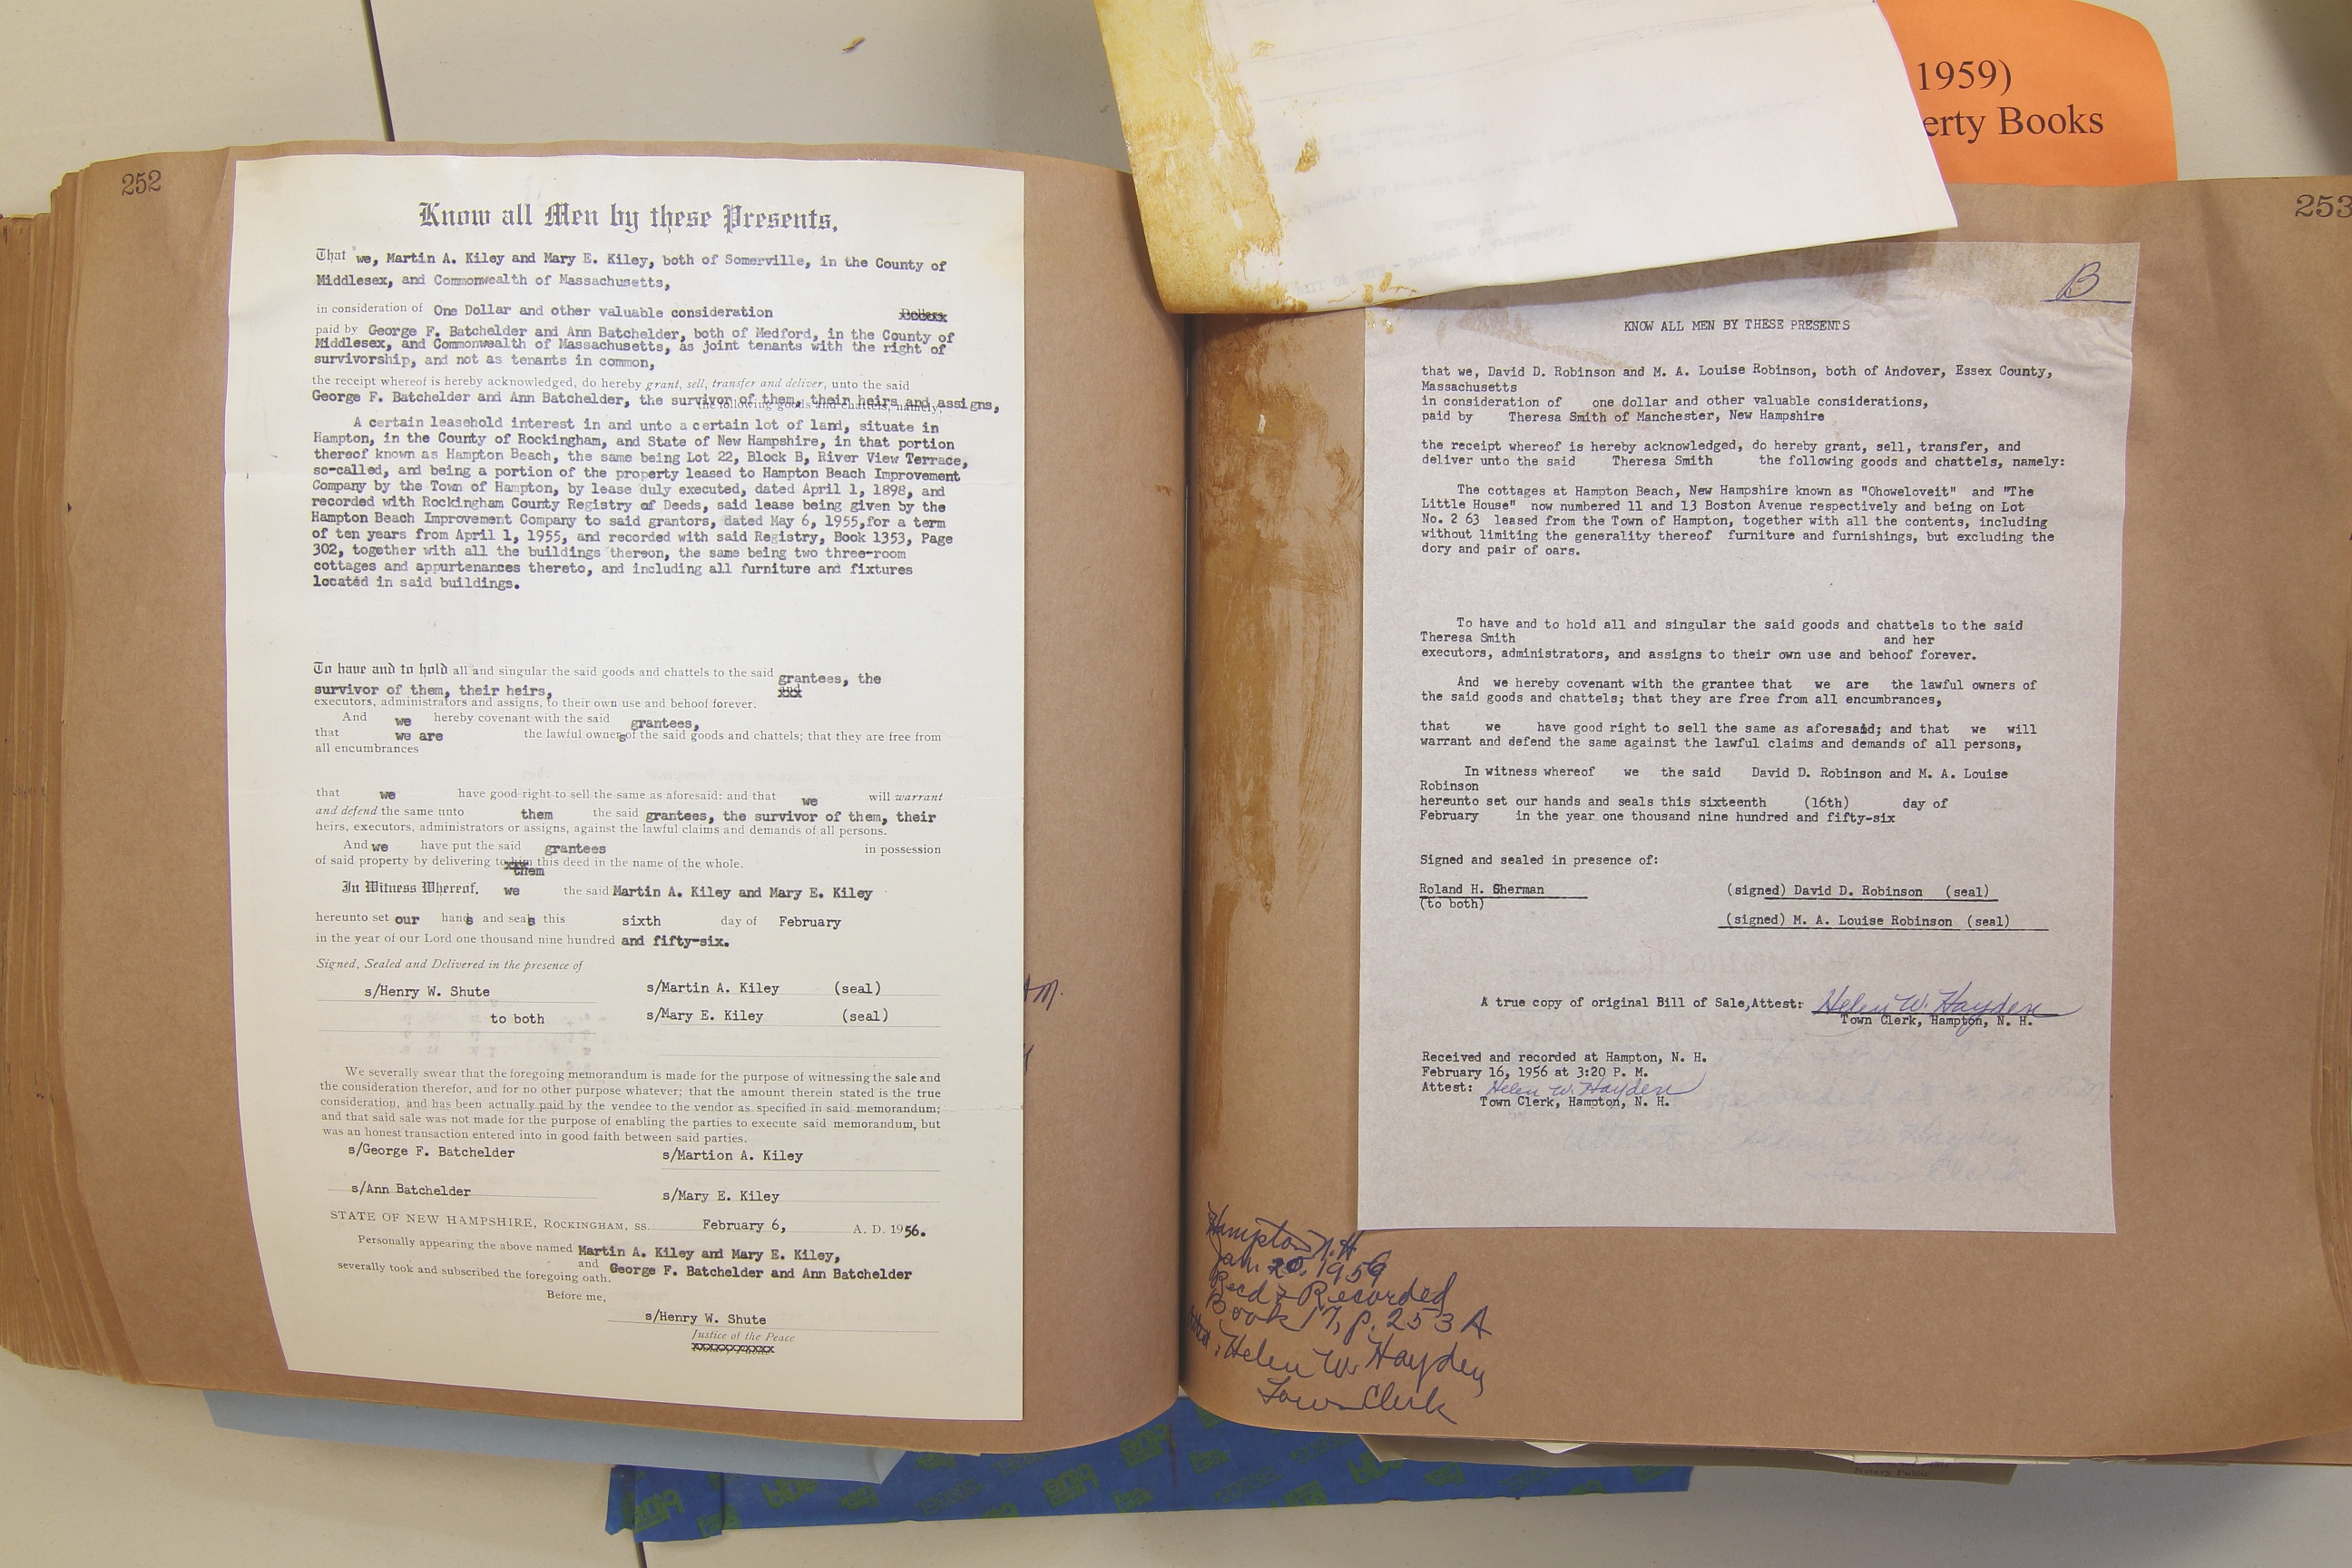 1959)
erty Books
252
Know all Men by these Presents,
That we, Martin A. Kiley and Mary E. Kiley, both of Somerville, in the County of
Middlesex, and Commonwealth of Massachusetts,
in consideration of One Dollar and other valuable consideration Dollars
paid by George F. Batchelder and Ann Batchelder, both of Medford, in the County of
Middlesex, and Commonwealth of Massachusetts, as joint tenants with the right of
survivorship, and not as tenants in common,
the receipt whereof is hereby acknowledged, do hereby grant, sell, transfer and deliver, unto the said
George F. Batchelder and Ann Batchelder, the survivor of them, their heirs and assigns,
the following goods and chattels, namely:
A certain leasehold interest in and unto a certain lot of land, situate in
Hampton, in the County of Rockingham, and State of New Hampshire, in that portion
thereof known as Hampton Beach, the same being Lot 22, Block B, River View Terrace,
so-called, and being a portion of the property leased to Hampton Beach Improvement
Company by the Town of Hampton, by lease duly executed, dated April 1, 1898, and
recorded with Rockingham County Registry of Deeds, said lease being given by the
Hampton Beach Improvement Company to said grantors, dated May 6, 1955,for a term
of ten years from April 1, 1955, and recorded with said Registry, Book 1353, Page
302, together with all the buildings thereon, the same being two three-room
cottages and appurtenances thereto, and including all furniture and fixtures
located in said buildings.
To have and to hold all and singular the said goods and chattels to the said grantees, the
survivor of them, their heirs, and
executors, administrators and assigns, to their own use and behoof forever.
And we hereby covenant with the said grantees,
that we are the lawful owners of the said goods and chattels; that they are free from
all encumbrances
that we have good right to sell the same as aforesaid: and that we will warrant
and defend the same unto them the said grantees, the survivor of them, their
heirs, executors, administrators or assigns, against the lawful claims and demands of all persons.
And we have put the said grantees in possession
of said property by delivering to him this deed in the name of the whole.
them
In Witness Whereof, we the said Martin A. Kiley and Mary E. Kiley
hereunto set our hands and seals this sixth day of February
in the year of our Lord one thousand nine hundred and fifty-six.
Signed, Sealed and Delivered in the presence of
s/Henry W. Shute s/Martin A. Kiley (seal)
to both s/Mary E. Kiley (seal)
We severally swear that the foregoing memorandum is made for the purpose of witnessing the sale and
the consideration therefor, and for no other purpose whatever; that the amount therein stated is the true
consideration, and has been actually paid by the vendee to the vendor as specified in said memorandum;
and that said sale was not made for the purpose of enabling the parties to execute said memorandum, but
was an honest transaction entered into in good faith between said parties.
s/George F. Batchelder s/Martion A. Kiley
s/Ann Batchelder s/Mary E. Kiley
STATE OF NEW HAMPSHIRE, ROCKINGHAM, SS. February 6, A. D. 1956.
Personally appearing the above named Martin A. Kiley and Mary E. Kiley,
and
severally took and subscribed the foregoing oath. George F. Batchelder and Ann Batchelder
Before me,
s/Henry W. Shute
Justice of the Peace
253
B
KNOW ALL MEN BY THESE PRESENTS
that we, David D. Robinson and M. A. Louise Robinson, both of Andover, Essex County,
Massachusetts
in consideration of one dollar and other valuable considerations,
paid by Theresa Smith of Manchester, New Hampshire
the receipt whereof is hereby acknowledged, do hereby grant, sell, transfer, and
deliver unto the said Theresa Smith the following goods and chattels, namely:
The cottages at Hampton Beach, New Hampshire known as "Ohoweloveit" and "The
Little House" now numbered 11 and 13 Boston Avenue respectively and being on Lot
No. 2 63 leased from the Town of Hampton, together with all the contents, including
without limiting the generality thereof furniture and furnishings, but excluding the
dory and pair of oars.
To have and to hold all and singular the said goods and chattels to the said
Theresa Smith and her
executors, administrators, and assigns to their own use and behoof forever.
And we hereby covenant with the grantee that we are the lawful owners of
the said goods and chattels; that they are free from all encumbrances,
that we have good right to sell the same as aforesaid; and that we will
warrant and defend the same against the lawful claims and demands of all persons,
In witness whereof we the said David D. Robinson and M. A. Louise
Robinson
hereunto set our hands and seals this sixteenth (16th) day of
February in the year one thousand nine hundred and fifty-six
Signed and sealed in presence of:
Roland H. Sherman (signed) David D. Robinson (seal)
(to both)
(signed) M. A. Louise Robinson (seal)
A true copy of original Bill of Sale,Attest: Helen W. Hayden
Town Clerk, Hampton, N. H.
Received and recorded at Hampton, N. H.
February 16, 1956 at 3:20 P. M.
Attest: Helen W. Hayden
Town Clerk, Hampton, N. H.
Hampton N.H
Jan. 20, 1956
Recd & Recorded
Book 17, p. 253 A
Attest, Helen W. Hayden,
Town Clerk